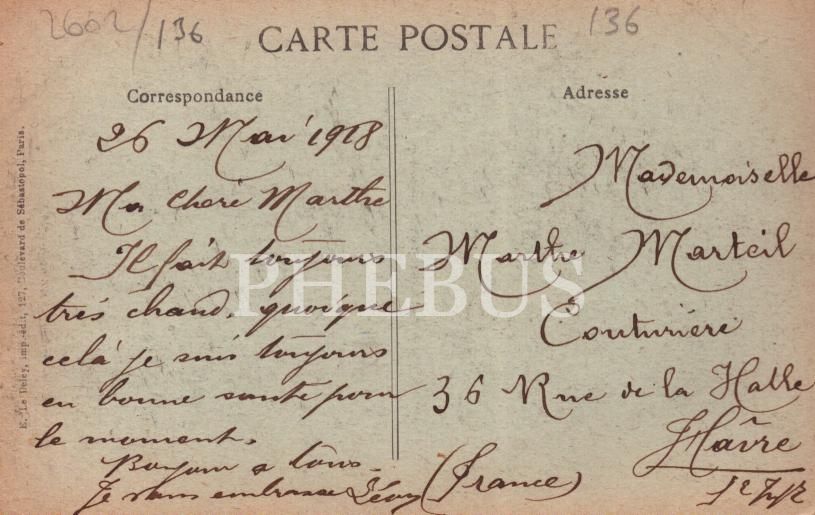 2602/136
136
CARTE POSTALE
Correspondance
Adresse
26 Mai 1918
Ma cheré Marthe
Il fait toujours
trés chaud. quoique
celà je suis toujours
en bonne santé pour
le moment.
Bonjour a tous.
Je vous embrasse Léon
Mademoiselle
Marthe Marteil
Couturiére
36 Rue de la Halle
Hâvre
(France)
PHEBUS
E. Le Deley, imp.-édit, 127, Boulevard de Sébastopol, Paris.